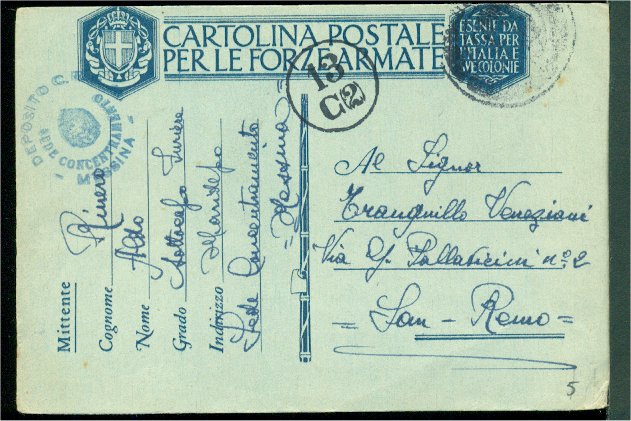 CARTOLINA POSTALE
PER LE FORZE ARMATE
ESENTE DA
TASSA PER
L'ITALIA E
LE COLONIE
13
C(2)
DEPOSITO
SEDE CONCENTRAMENTO
MESSINA
Mittente
Cognome Rivera
Nome Aldo
Grado Sottocapo
Indirizzo
Sede Concentramento
= Messina =
Al Signor
Tranquillo Veneziani
Via G. Pallavicini n.º 2
= San - Remo =
5